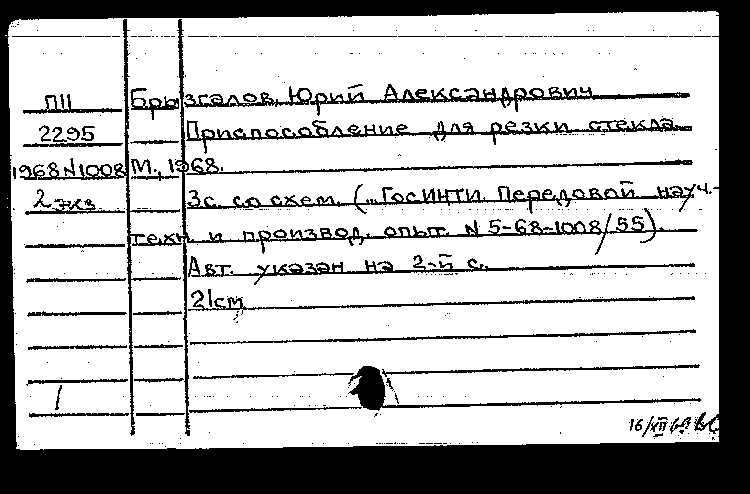 П11 Брызгалов, Юрий Александрович
2295 Приспособление для резки стекла.
1968 N1008 М., 1968.
2 экз 3с. со схем. (...ГосИНТИ. Передовой науч.-
техн. и производ. опыт. N 5-68-1008/55).
Авт. указан на 2-й с.
21см
16/XII 69